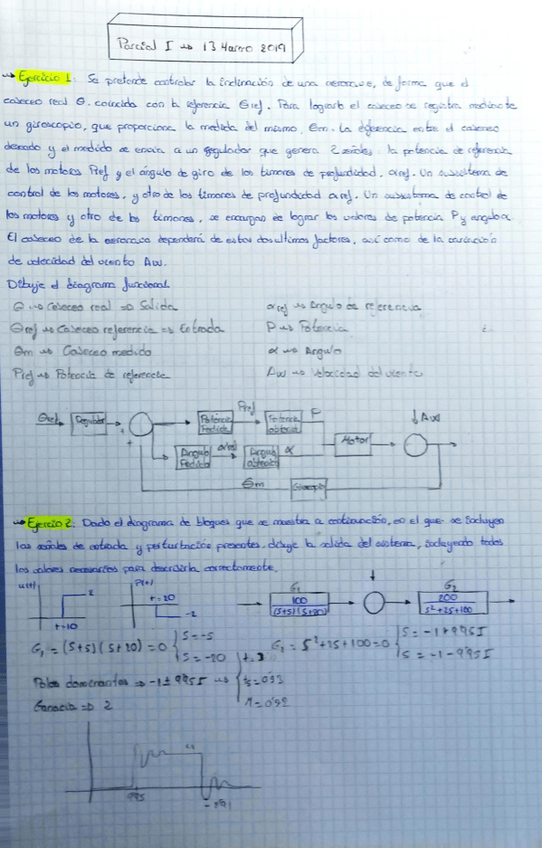 Parcial I → 13 Marzo 2019
→ Ejercicio 1: Se pretende controlar la inclinación de una aeronave, de forma que el
cabeceo real θ. coincida con la referencia θref. Para lograrlo el cabeceo se registra mediante
un giroscopio, que proporciona la medida del mismo, θm. La diferencia entre el cabeceo
deseado y el medido se envía a un regulador que genera 2 señales: la potencia de referencia
de los motores Pref y el ángulo de giro de los timones de profundidad, αref. Un subsistema de
control de los motores, y otro de los timones de profundidad αref. Un subsistema de control de
los motores y otro de los timones, se encargan de lograr los valores de potencia P y angulo α.
El cabeceo de la aeronave dependerá de estos dos ultimos factores, así como de la variación
de velocidad del viento Δw.
Dibuje el diagrama funcional.
θ → Cabeceo real => Salida
αref → Angulo de referencia
θref → Cabeceo referencia => Entrada
P → Potencia
θm → Cabeceo medido
α → Angulo
Pref → Potencia de referencia
Δw → Velocidad del viento
θref
Regulador
+
Potencia Pedida
Pref
Potencia obtenida
P
Motor
Δw
Angulo Pedido
αref
Angulo obtenido
α
θm
Giroscopio
→ Ejercicio 2: Dado el diagrama de bloques que se muestra a continuación, en el que se incluyen
las señales de entrada y perturbación presentes, dibuje la salida del sistema, incluyendo todos
los valores necesarios para describirla correctamente.
u(t)
2
t=10
P(t)
t=20
-2
G1
100
(s+5)(s+20)
G2
200
s²+2s+100
G1 = (s+5)(s+20) = 0 { s=-5
s=-20
G2 = s²+2s+100=0 { s=-1+9'95I
s=-1-9'95I
Polos dominantes => -1±9'95I →
Ganancia => 2